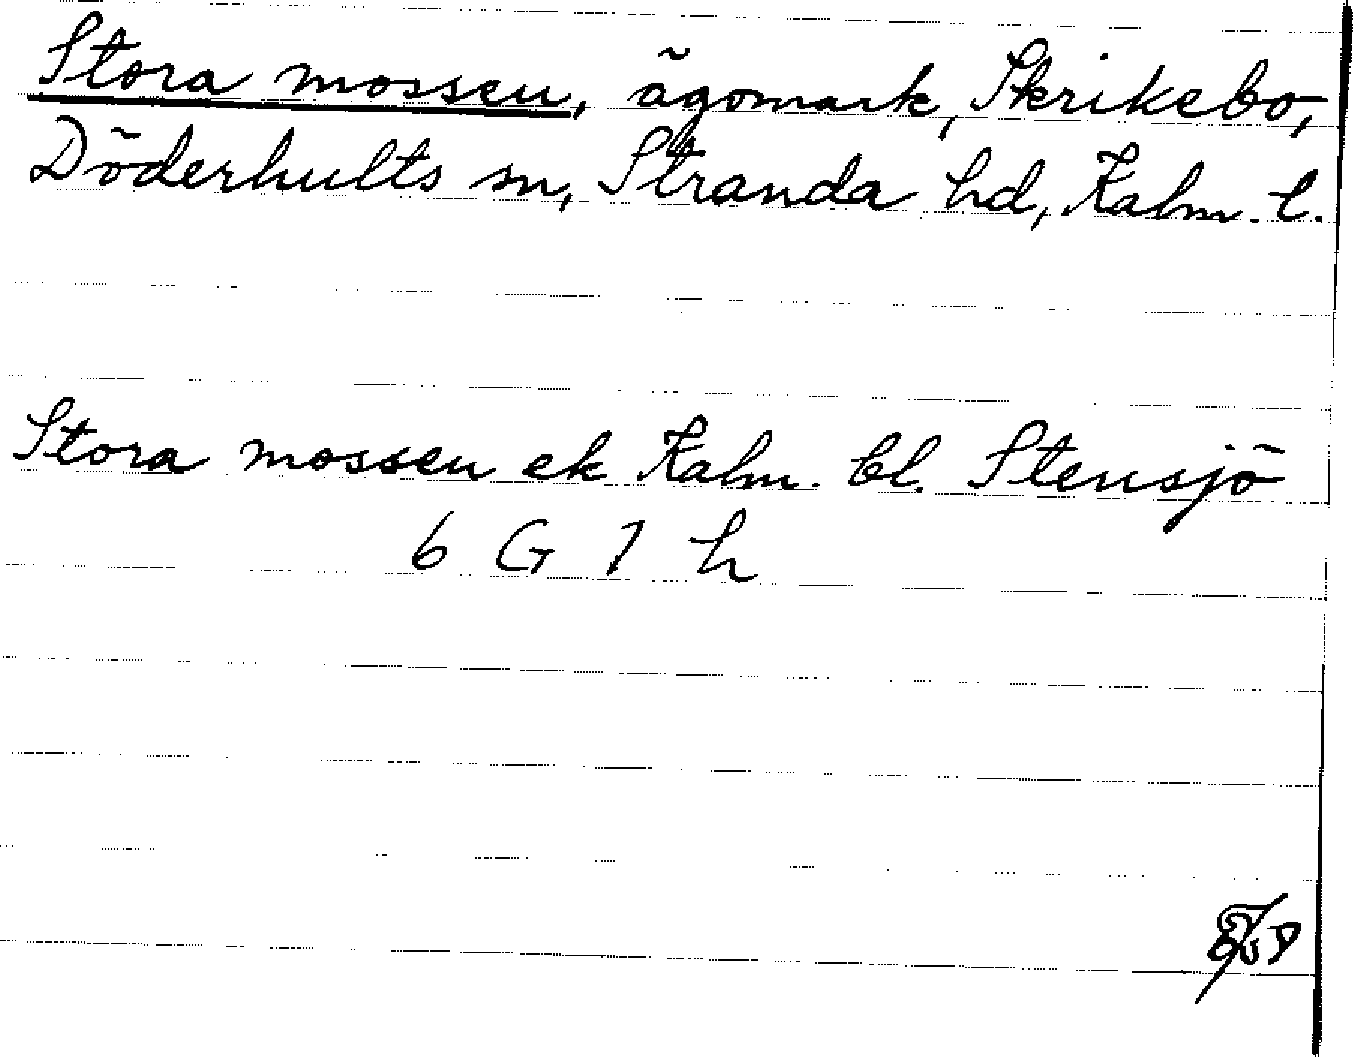 Stora mossen, ägomark, Skrikebo,
Döderhults sn, Stranda hd, Kalm. l.
Stora mossen ek Kalm. bl. Stensjö
6 G 7 h